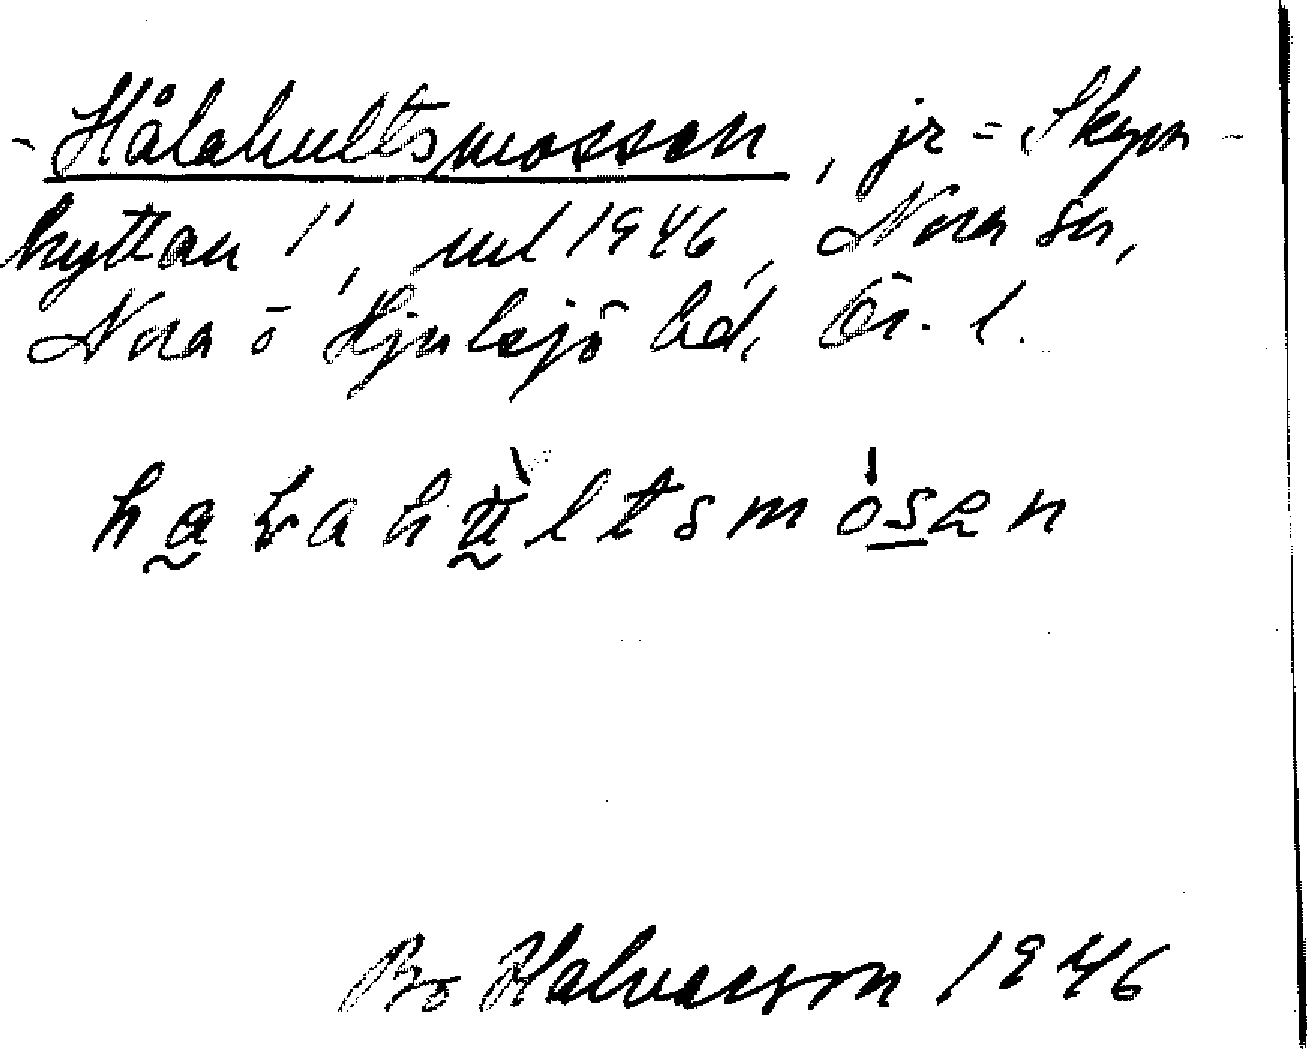 - Hålahultsmossen, jr = Skym-
hyttan 1¹, uul 1946, Nora sn,
Nora o Hjulsjö bd, Ör. l.
halahu̇ltsmósen
Bo Halvarson 1946